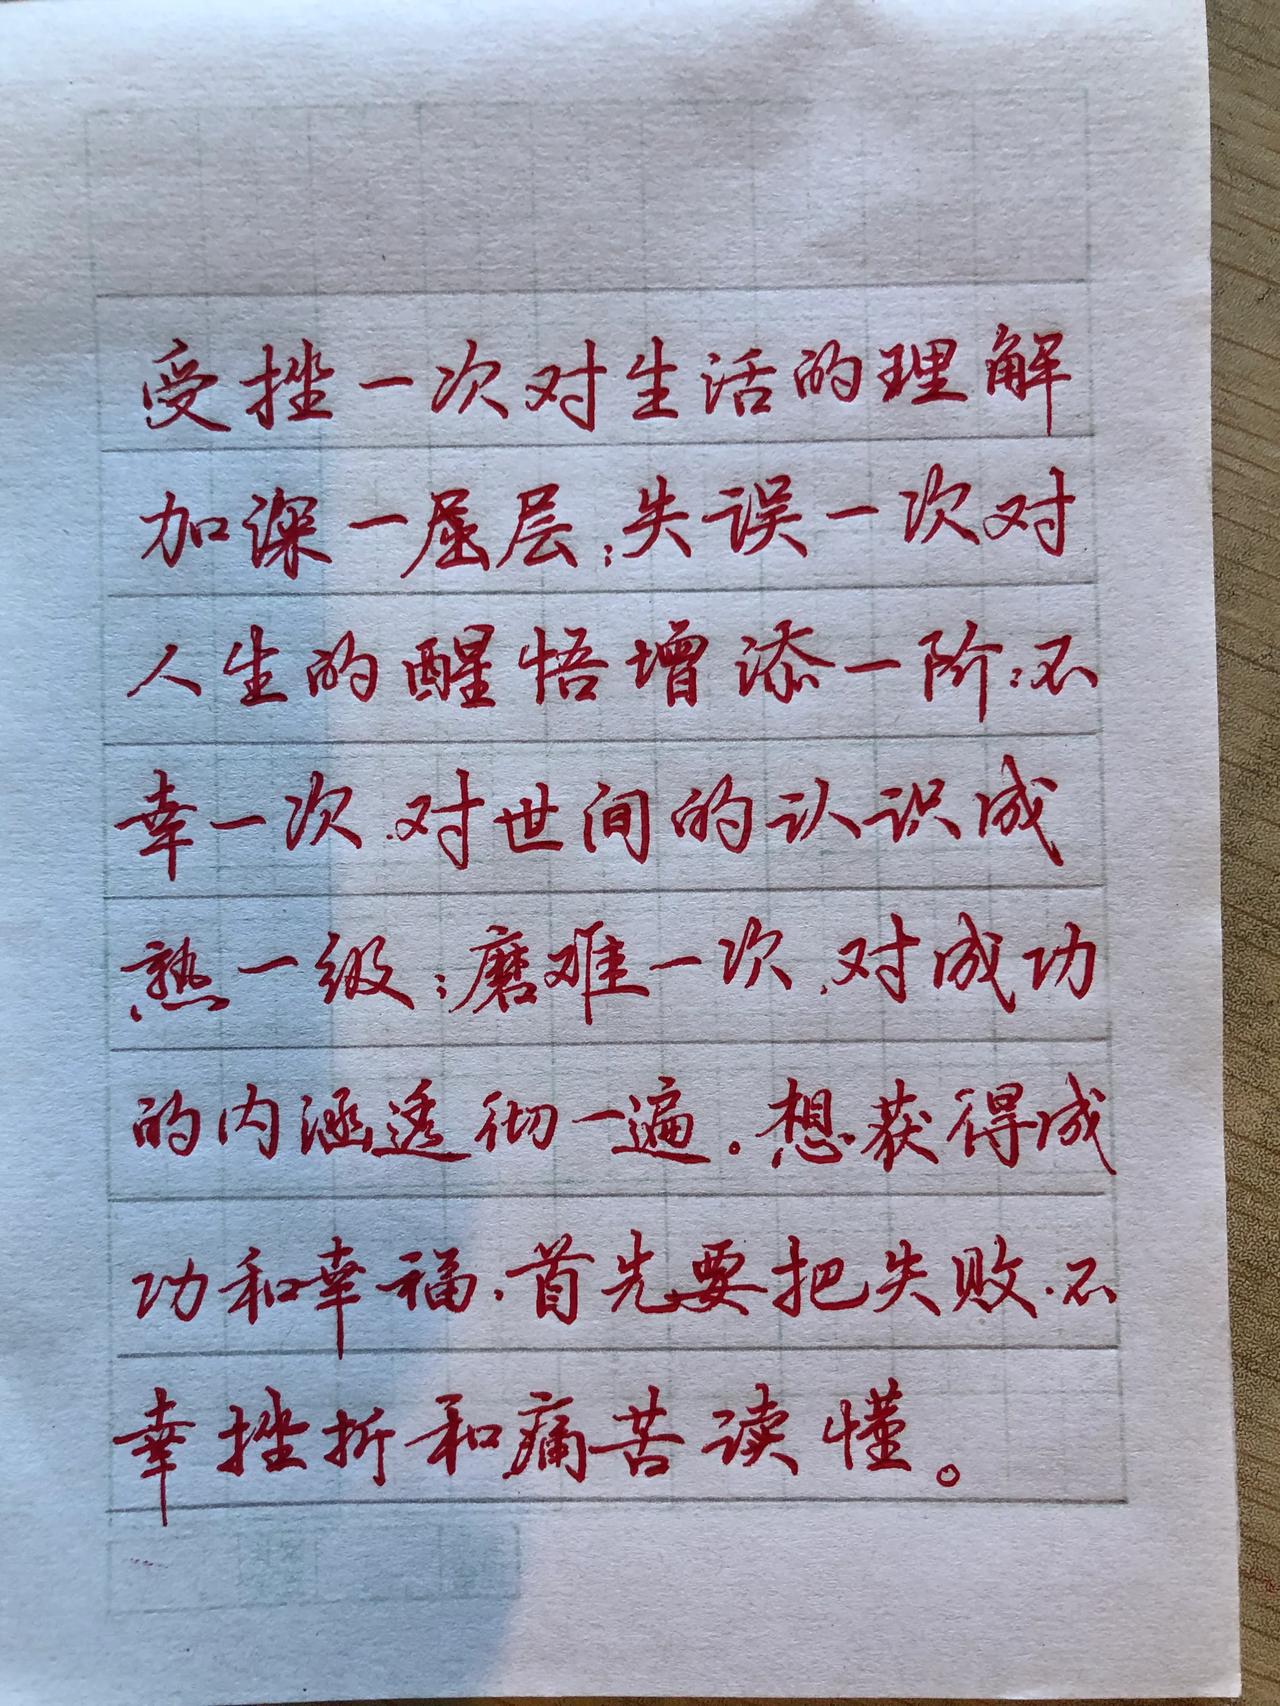 受挫一次对生活的理解
加深一屋层；失误一次对
人生的醒悟增添一阶；不
幸一次，对世间的认识成
熟一级；磨难一次，对成功
的内涵透彻一遍。想获得成
功和幸福，首先要把失败，不
幸挫折和痛苦读懂。